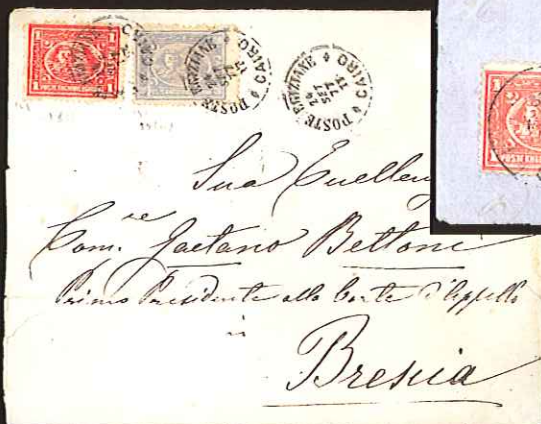 1 1
POSTE KHEDEUIE
POSTE EGIZIANE
CAIRO
POSTE EGIZIANE
CAIRO
Sua Eccellen
Com.re Gaetano Bettoni
Primo Presidente alla Corte d'Appello
in
Brescia